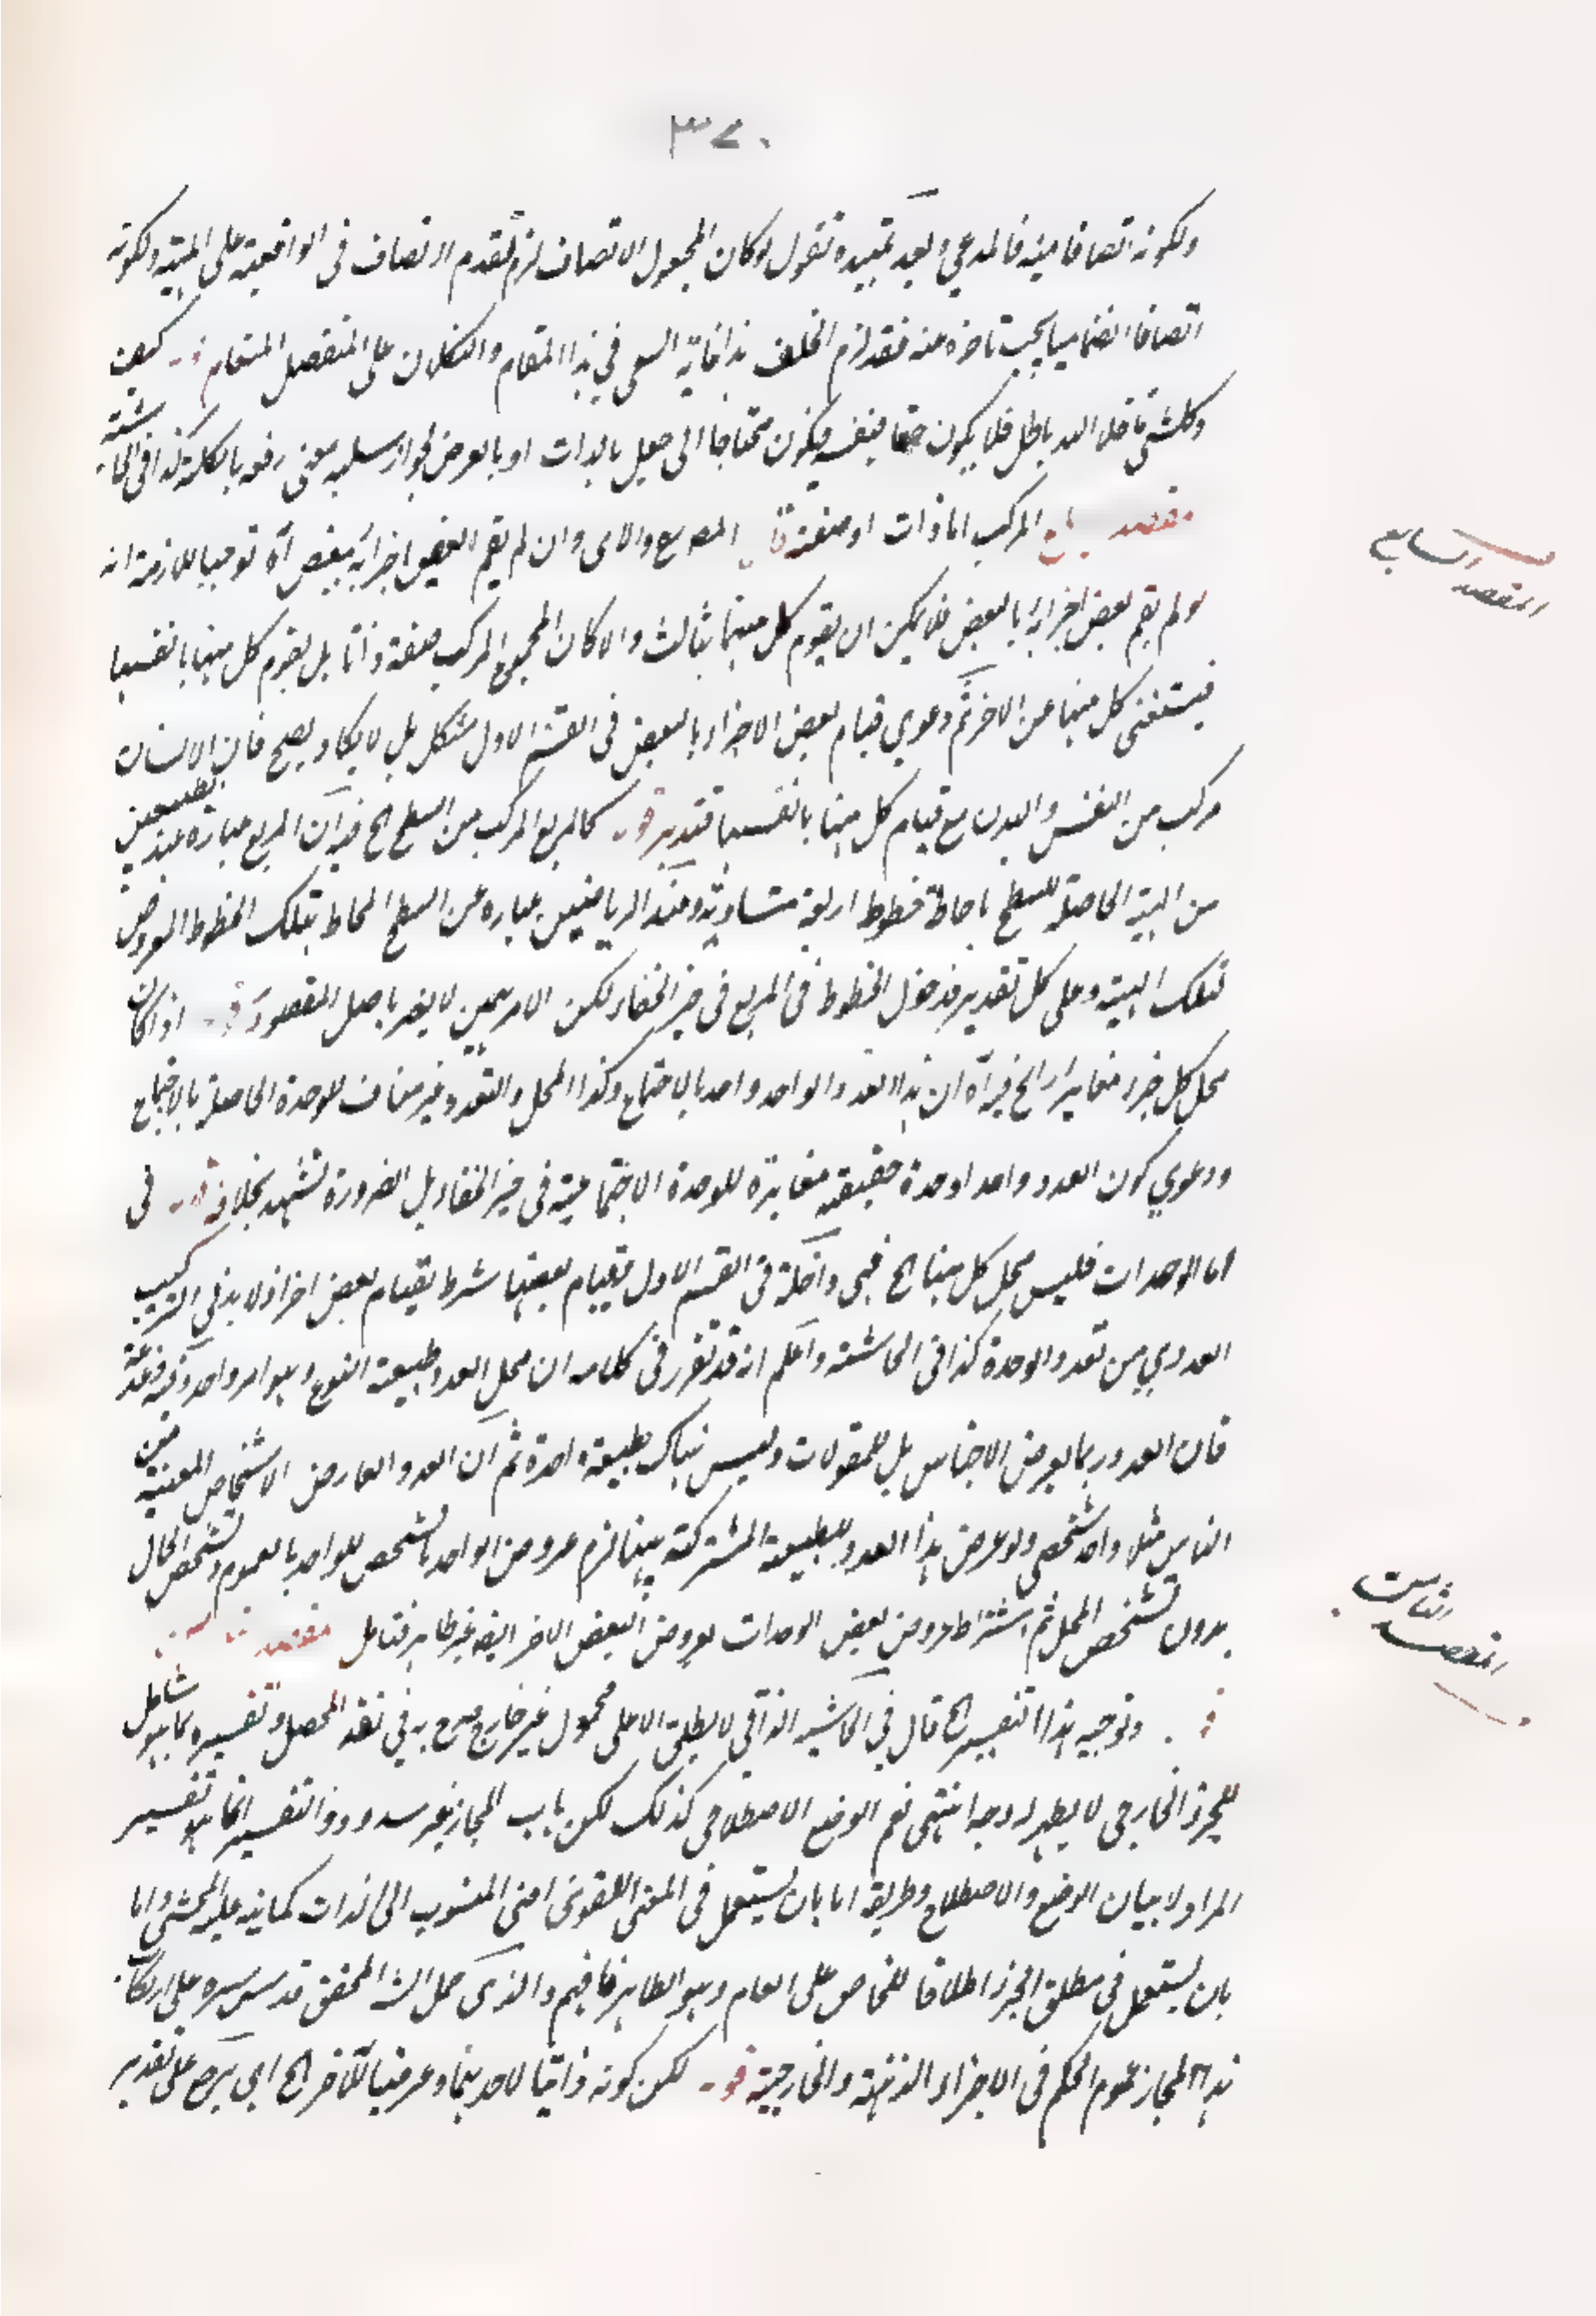 ٣٧٠
ولكونه اتصافا مينه فالمدعي وبعد تمهيده نقول لو كان المجعول الاتصاف لزم تقدم الاتصاف فى الواقعية على الهيئة ولكونه
اتصافا انضماميا يجب تاخره عنه فقد لزم الخلف هذا غاية السعى في هذا المقام والتكلان على المفضل المنعام قوله كيف
وكلشئ ما خلا الله باطل فلا يكون حقا بنفسه فيكون محتاجا الى جعل بالذات او بالعرض لجواز سلبه بمعنى رفعه بالكلية كذا فى الحاشية
مقصد المركب اما ذات او صفة والاى وان لم يقم البعض اجزائه ببعض آه توجيها للازمة انه
لو لم يقم بعض اجزائه بالبعض فلا يمكن ان يقوم كل منهما بثالث والا كان المجموع المركب صفة وذاتا بل يقوم كل منهما بانفسها
فيستغنى كل منهما عن الاخر ثم دعوي قيام بعض الاجزاء بالبعض فى القسم الاول مشكل بل لا يكاد يصح فان الانسان
مركب من النفس والبدن مع قيام كل منهما بانفسها فتدبر قوله كالمربع المركب من السطح الخ فيه ان المربع عبارة عند الطبيعيين
من الهيئة الحاصلة للسطح باحاطة خطوط اربعة متساوية وعند الرياضيين عبارة عن السطح المحاط بتلك الخطوط المعروض
لتلك الهيئة وعلى كل تقدير فدخول الخطوط فى المربع فى حيز الخفاء لكن الامر سهل لا يضر باصل المقصود قوله اذ كان
محل كل جزء مغايرا الخ فيه آه ان هذا العدد الواحد واحد بالاجتماع وكذا المحل والتعدد غير مناف للوحدة الحاصلة بالاجتماع
ودعوي كون العدد واحدا وحدة حقيقية مغايرة للوحدة الاجتماعية فى حيز الخفاء بل الضرورة تشهد بخلافه قوله فى
اما الوحدات فليس محل كل منها الخ فهى داخلة فى القسم الاول فقيام بعضها شرط بقيام بعض اخر اذ لا بد فى التركيب
العددي من تعدد الوحدة كذا فى الحاشية واعلم انه قد تقرر فى كلامه ان محل العدد طبيعة النوع وهو امر واحد وفيه
فان العدد ربما يعرض الاجناس بل للمقولات وليس هناك طبيعة واحدة ثم ان العدد العارض الاشخاص المعينة من
الناس مثلا واحد شخصي ولو عرض هذا العدد للطبيعة المشتركة بينها لزم عروض الواحد بالشخص للواحد بالعموم وتشخص الحال
بدون تشخص المحل ثم اشتراط عروض بعض الوحدات بعروض البعض الاخر ايضا غير ظاهر فتامل مقصد
قوله وتوجيه هذا التفسير الخ قال في الحاشية الذاتى لا يطلق الا على محمول غير خارج صرح به في نقد المحصل وتفسيره بما هو شامل
للجزء الخارجى لا يظهر له وجه انتهى نعم الوضع الاصطلاحى كذلك لكن باب المجاز غير مسدود وذا التفسير انما هو تفسير
المراد لا بيان الوضع والاصطلاح وطريقه اما بان يستعمل فى المعنى اللغوى اعنى المنسوب الى الذات كما نبه عليه المحشى واما
بان يستعمل فى مطلق الجزء اطلاقا للخاص على العام وهو الظاهر فافهم والذى حمل الش المحقق قدس سره على ارتكاب
هذا المجاز عموم الحكم فى الاجزاء الذهنية والخارجية قوله لكن كونه ذاتيا لاحدهما وعرضيا للاخر الخ اى يصح على تقدير
المقصد السابع
المقصد الثامن